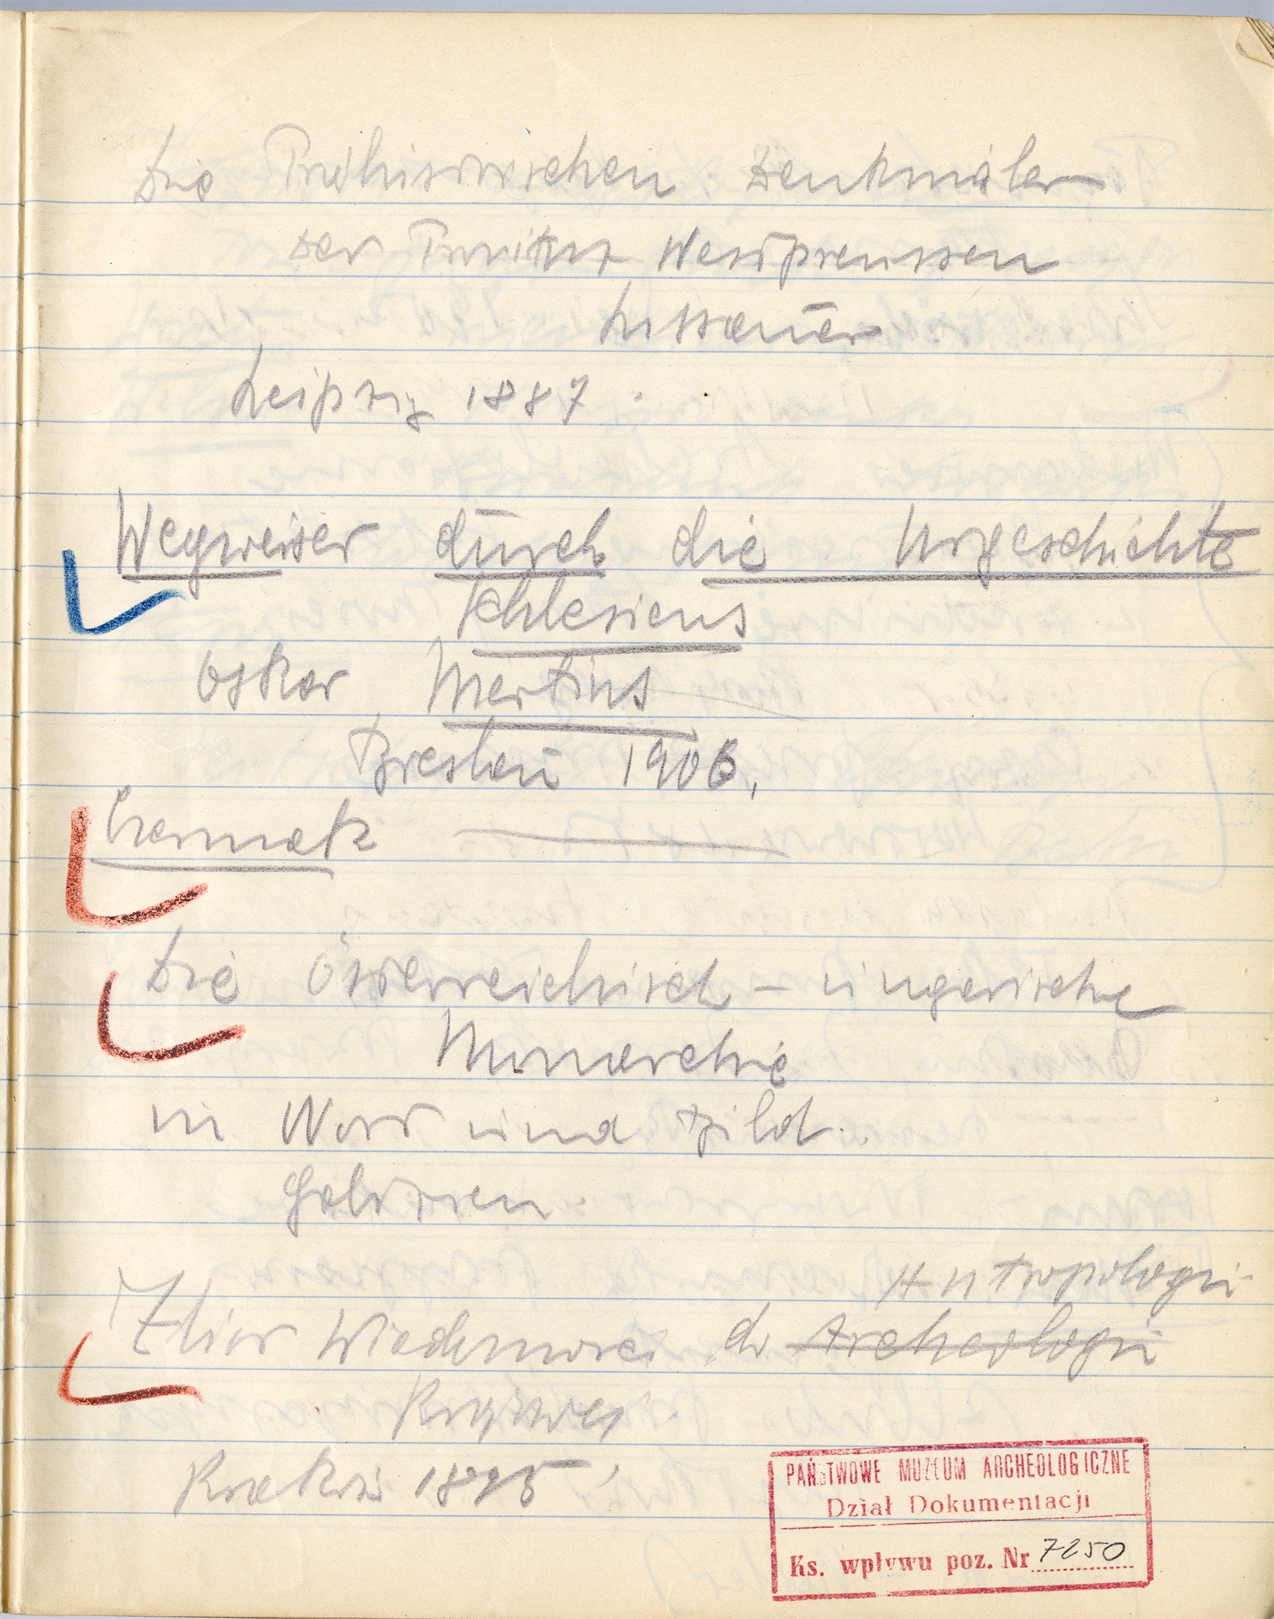 Die Prähistorischen Denkmäler
der Provinz Westpreussen
Lissauer
Leipzig 1887
Wegweiser durch die Urgeschichte
Schlesiens
Oskar Mertins
Breslau 1906,
Czermak
Die Österreichisch - ungarische
Monarchie
in Wort und Bild.
Galizien.
Antropologii
Zbior Wiadomosci do Archeologii
Krajowej
Krakow 1895
PAŃSTWOWE MUZEUM ARCHEOLOGICZNE
Dział Dokumentacji
Ks. wpływu poz. Nr 7250